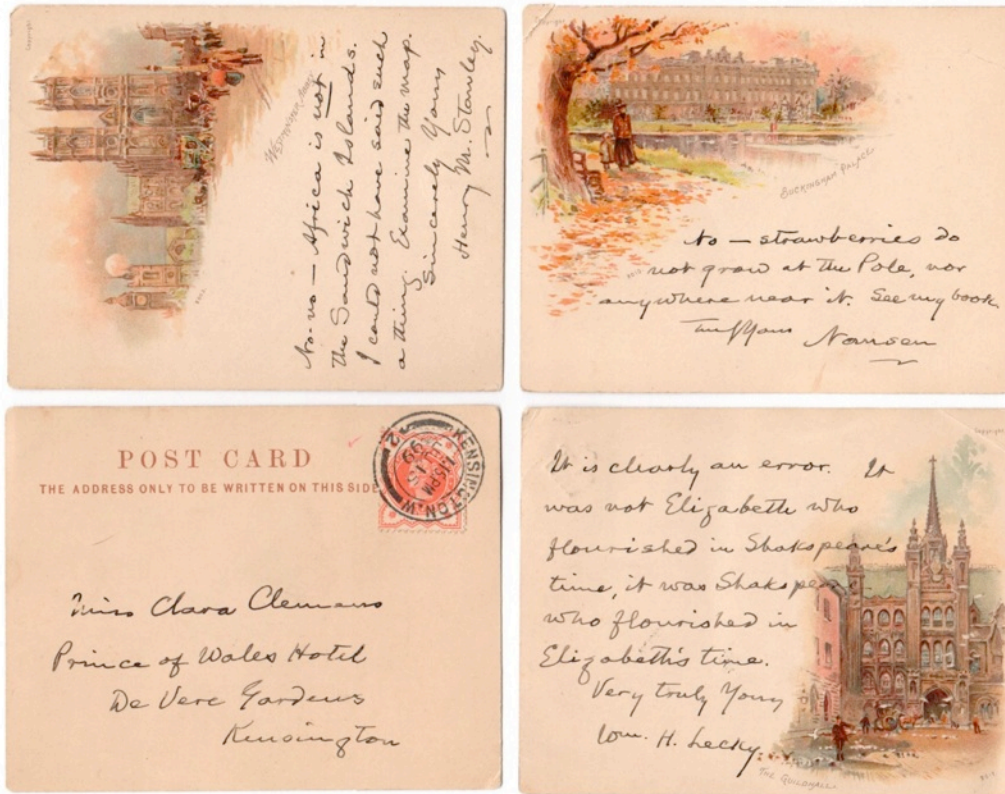 Copyright
WESTMINSTER ABBEY.
No-no — Africa is not in
the Sandwich Islands.
I could not have said such
a thing. Examine the map.
Sincerely Yours
Henry M. Stanley.
Copyright
BUCKINGHAM PALACE.
No — strawberries do
not grow at the Pole, nor
anywhere near it. See my book
Truly Yours
Nansen
POST CARD
THE ADDRESS ONLY TO BE WRITTEN ON THIS SIDE
KENSINGTON.W
1.15PM
99
Miss Clara Clemens
Prince of Wales Hotel
De Vere Gardens
Kensington
Copyright
It is clearly an error. It
was not Elizabeth who
flourished in Shakspeare's
time, it was Shakspeare
who flourished in
Elizabeth's time.
Very truly Yours
Wm. H. Lecky.
THE GUILDHALL.